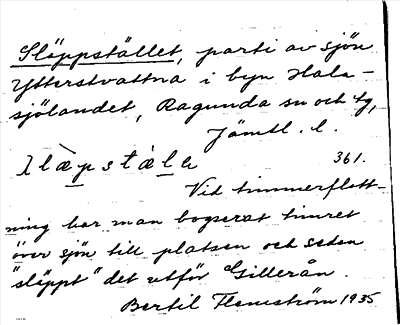 Släppstället, parti av sjön
Ytterstvattna i byn Hala-
sjölandet, Ragunda sn och tg,
Jämtl. l.
361.
Vid timmerflott-
ning har man bogserat timret
över sjön till platsen och sedan
"släppt" det utför Gillerån.
Bertil Flemström 1935